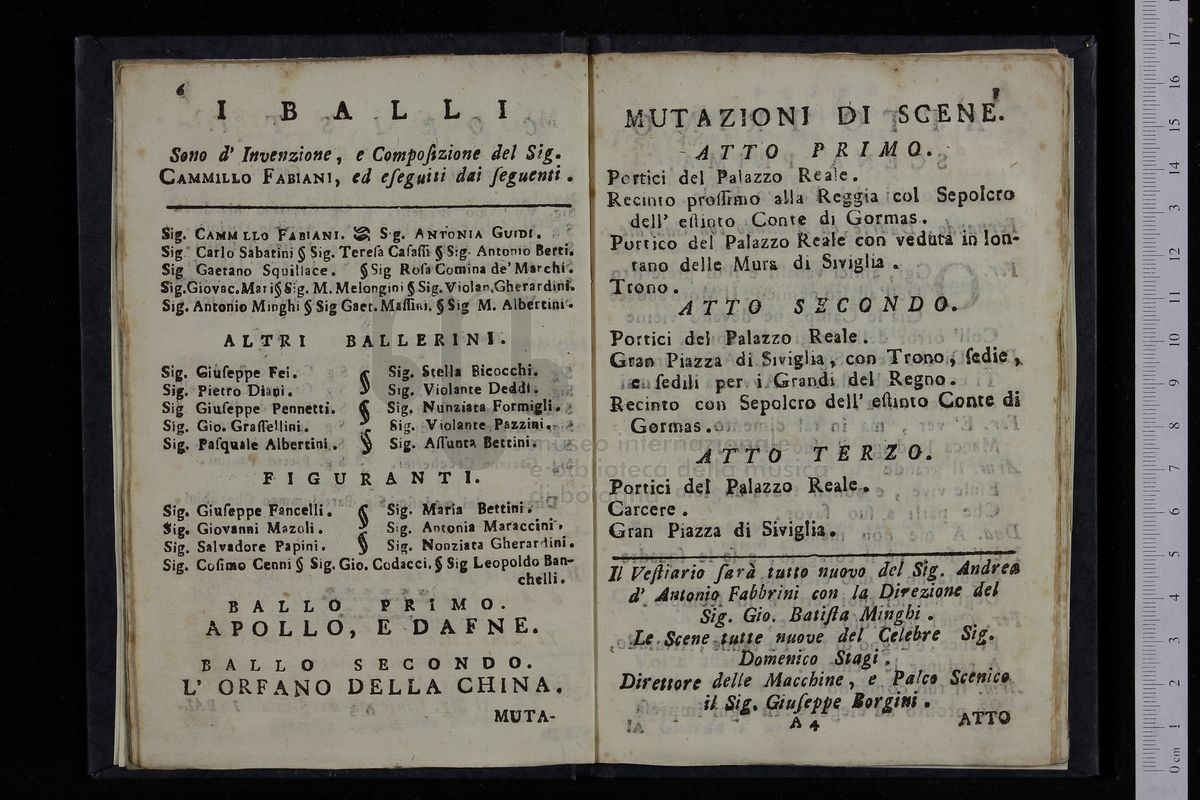 6
I BALLI
Sono d' Invenzione, e Compoſizione del Sig.
CAMMILLO FABIANI, ed eſeguiti dai ſeguenti.
Sig. CAMM LLO FABIANI. S.g. ANTONIA GUIDI.
Sig. Carlo Sabatini § Sig. Tereſa Caſaſſi § Sig. Antonio Berti.
Sig Gaetano Squillace. § Sig Roſa Comina de' Marchi.
Sig. Giovac. Mari § Sig. M. Melongini § Sig. Violan. Gherardini.
Sig. Antonio Minghi § Sig Gaet. Maſſini. § Sig M. Albertini.
ALTRI BALLERINI.
Sig. Giuſeppe Fei. § Sig. Stella Bicocchi.
Sig. Pietro Diani. Sig. Violante Deddi.
Sig Giuſeppe Pennetti. § Sig. Nunziata Formigli.
Sig. Gio. Graſſellini. Sig. Violante Pazzini.
Sig. Paſquale Albertini. § Sig. Aſſunta Bettini.
FIGURANTI.
Sig. Giuſeppe Fancelli. § Sig. Maria Bettini.
Sig. Giovanni Mazoli. Sig. Antonia Maraccini.
Sig. Salvadore Papini. § Sig. Nonziata Gherardini.
Sig. Coſimo Cenni § Sig. Gio. Codacci. § Sig Leopoldo Ban-
chelli.
BALLO PRIMO.
APOLLO, E DAFNE.
BALLO SECONDO.
L' ORFANO DELLA CHINA.
MUTA-
7
MUTAZIONI DI SCENE.
ATTO PRIMO.
Portici del Palazzo Reale.
Recinto proſſimo alla Reggia col Sepolcro
dell' eſtinto Conte di Gormas.
Portico del Palazzo Reale con veduta in lon-
tano delle Mura di Siviglia.
Trono.
ATTO SECONDO.
Portici del Palazzo Reale.
Gran Piazza di Siviglia, con Trono, ſedie,
e ſedili per i Grandi del Regno.
Recinto con Sepolcro dell' eſtinto Conte di
Gormas.
ATTO TERZO.
Portici del Palazzo Reale.
Carcere.
Gran Piazza di Siviglia.
Il Veſtiario ſarà tutto nuovo del Sig. Andrea
d' Antonio Fabbrini con la Direzione del
Sig. Gio. Batiſta Minghi.
Le Scene tutte nuove del Celebre Sig.
Domenico Stagi.
Direttore delle Macchine, e Palco Scenico
il Sig. Giuſeppe Borgini.
A 4 ATTO
museo internazionale
e biblioteca della musica
di bologna
0 cm 1 2 3 4 5 6 7 8 9 10 11 12 13 14 15 16 17